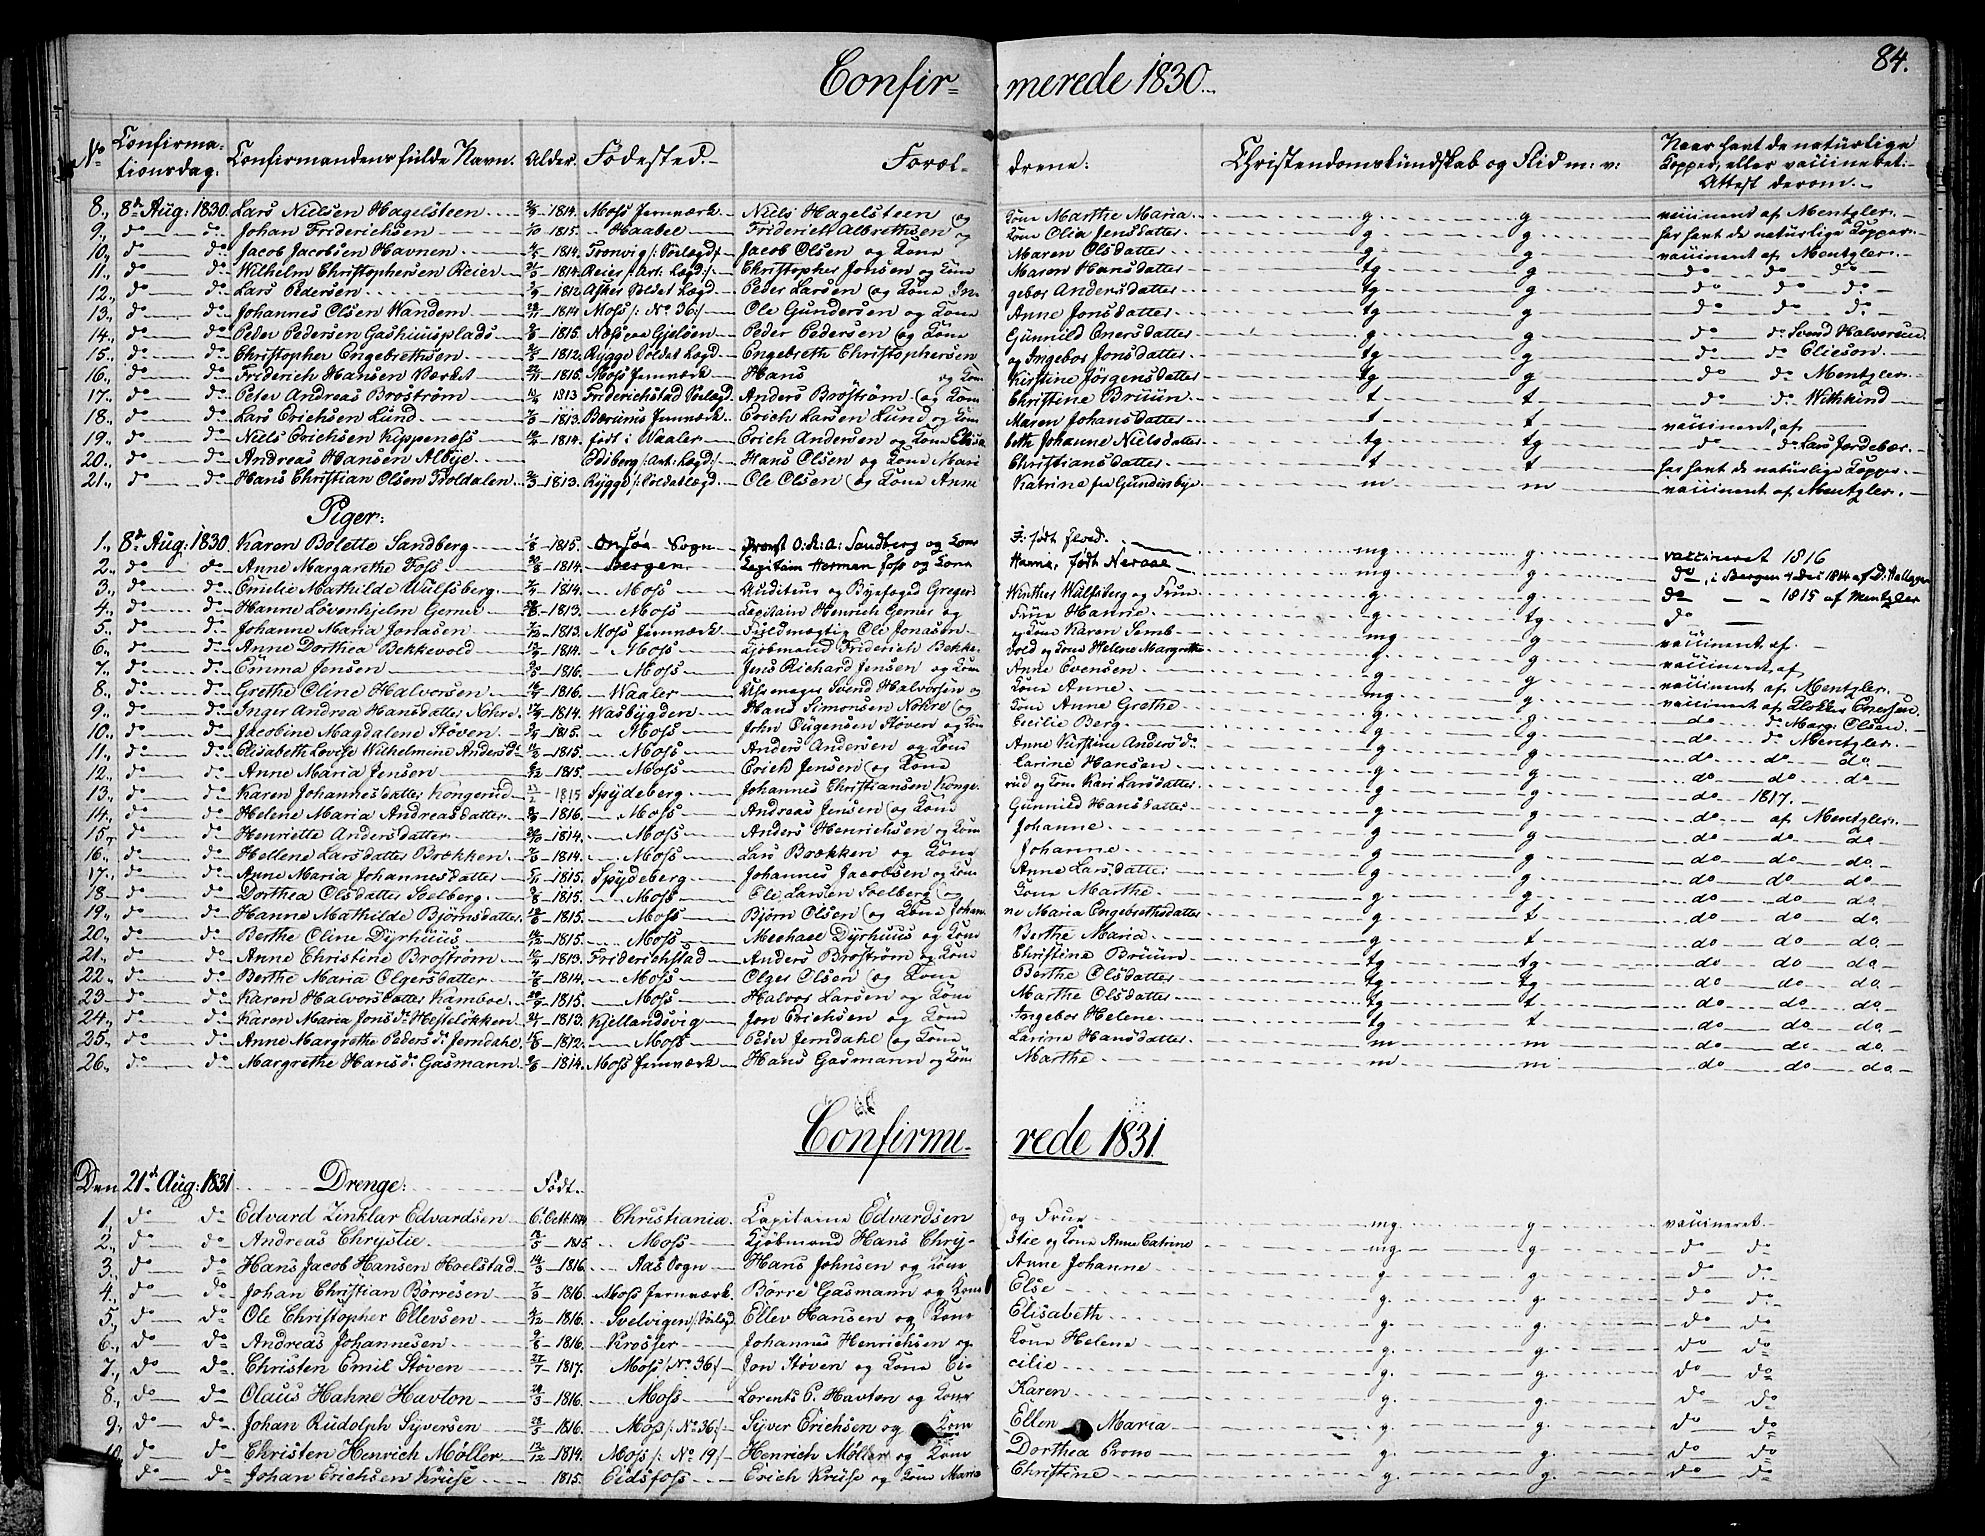 84.
Confir- merede 1830.
No Confirmationsdag: Confirmandens fulde Navn. Alder. Födested. Foræl- drene: Christendomskundskab og Flid m: v: Naar havt de naturlige Copper, eller vaccineret: Attest derom.
8., 8de Aug: 1830. Lars Nielsen Hagelsteen 1814. Moss Jernværk Niels Hagelsteen og Kone Marthe Maria g g vaccineret af Mentzler.
9., do do Johan Friderichsen 1815. Haabel Friderich Albrethsen og Kone Olia Jensdatter g g har havt de naturlige Copper.
10., do do Jacob Jacobsen Havnen 1814. Tronvig /:Sölægd/ Jacob Olsen og Kone Maren Olsdatter g g vaccineret af Mentzler.
11., do do Wilhelm Christophersen Reier 1814. Reier /:Art: Lægd:/ Christopher Jonsen og Kone Maren Hansdatter tg g do do do
12., do do Lars Pedersen 1812 Asker Soldat Lægd Peder Larsen og Kone In- gebor Andersdatter tg g do do do
13., do do Johannes Olsen Wandem 1814 Moss /: No 36:/ Ole Gundersen og Kone Anne Jonsdatter tg g do do do
14., do do Peder Pedersen Gashuusplads 1815. Næss paa Gjelöen Peder Pedersen og Kone Gunnild Enersdatter g g do do Svend Halvorsen
15., do do Christopher Engebrethsen 1812. Rygge Soldat Lægd Engebreth Christophersen og Ingebor Jonsdatter tg g do do Elieson.
16., do do Friderich Hansen Værket 1815. Moss Jernværk Hans og Kone Kirstine Jörgensdatter tg g do do Mentzler.
17., do do Peter Andreas Broström 1813 Friderichstad Sölægd Anders Broström og Kone Christine Bruun g g do do Withkind
18., do do Lars Erichsen Lund 1813. Bærums Jernværk Erich Larsen Lund og Kone Maren Johansdatter t t vaccineret, af
19., do do Niels Erichsen Kippenæss 1814. födt i Waaler Erich Andersen og Kone Elisa- beth Johanne Nielsdatter tg tg do do Lars Jordebær.
20., do do Andreas Hansen Albye Edsberg /:Art: Lægd:/ Hans Olsen og Kone Mari Christiansdatter t t har havt de naturlige Copper.
21., do do Hans Christian Olsen Noldalen 1813. Rygge /:Soldatlægd Ole Olsen og Kone Anne Katrine fra Gundersbye m m vaccineret af Mentzler.
Piger:
1., 8de Aug: 1830 Karen Bolette Sandberg 1815. Onsöe Sogn Provst O: R: A: Sandberg og Kone F: födt Floed. mg g vaccineret 1816
2., do do Anne Margarethe Foss 1814. Bergen Capitain Herman Foss og Kone Hanna, födt Neraae mg. g. do, i Bergen 4 Dec 1814 af D:
3., do do Emilie Mathilde Wulfsberg 1814. Moss Auditeur og Byefoged Gregers Winther Wulfsberg og Frue g. g. do 1815 af Mentzler
4., do do Hanne Lövenhjelm Gerner 1813. Moss Capitain Henrich Gerner og Frue Hanne g. tg. do
5., do do Johanne Maria Jonasen 1813. Moss Jernværk Fuldmægtig Ole Jonasen og Kone Karen Semb mg g. vaccineret af
6., do do Anne Dorthea Bekkevold 1814. Moss Kjöbmand Friderich Bekke- vold og Kone Helene Margrethe g. g. vaccineret af
7., do do Emma Jensen 1816. Moss Jens Richard Jensen og Kone Anne Evensen g g vaccineret af Mentzler
8., do do Grethe Oline Halvorsen 1816. Waaler Svend Halvorsen og Kone Anne mg g. vaccineret af Klokker Enersen
9., do do Inger Andrea Hansdatter Nökre 1814. Wasbygden Hans Simonsen Nökre og Kone Anne Grethe g g. do do Marg. Olsen
10., do do Jacobine Magdalene Stöven 1815. Moss John Stöven og Kone Cecilie Berg g tg do do Mentzler
11., do do Elisabeth Lovise Wilhelmine Andersdr 1815. Moss Anders Andersen og Kone Anne Kirstine Andersdr g g do do do
12., do do Anne Maria Jensen 1815. Moss Erich Jensen og Kone Carine Hansen g g do do do
13., do do Karen Johannesdatter Kongerud 1815 Spydeberg Johannes Christiansen Konge- rud og Kone Kari Larsdatter g g do 1817.
14., do do Helene Maria Andreasdatter 1816. Moss Andreas Jensen og Kone Gunnild Hansdatter g g do af Mentzler
15., do do Henriette Andersdatter 1814. Moss Anders Henrichsen og Kone Johanne g g do do do
16., do do Hellene Larsdatter Brækken 1814. Moss Lars Brækken og Kone Johanne g g do do do
17., do do Anne Maria Johannesdatter 1815. Spydeberg Johannes Jacobsen og Kone Anne Larsdatter g g do do do
18., do do Dorthea Olsdatter Soelberg 1815. Moss Ole Larsen Soelberg og Kone Marthe g g do do do
19., do do Hanne Mathilde Björnsdatter 1815. Moss Björn Olsen og Kone Johan- ne Maria Engebrethsdatter g t do do do
20., do do Berthe Oline Dyrhuus 1815. Moss Michael Dyrhuus og Kone Berthe Maria g t do do do
21., do do Anne Christine Broström 1813. Friderichstad Anders Broström og Kone Christine Bruun tg tg do do do
22., do do Berthe Maria Olgersdatter 1814. Moss Olger Olsen og Kone Berthe Olsdatter tg tg do do do
23., do do Karen Halvorsdatter Kamboe 1815. Moss Halvor Larsen og Kone Marthe Olsdatter tg t do do do
24., do do Karen Maria Jonsdr Hestelökken 1813. Kjellandsvig Jon Erichsen og Kone Ingebor Helene tg t do do do
25., do do Anne Margrethe Pedersdr Jerndahl 1812. Moss Peder Jerndahl og Kone Larine Hansdatter m m do do do
26., do do Margrethe Hansdr Gasmann 1814. Moss Jernværk Hans Gasmann og Kone Marthe m m do do do
Confirme- rede 1831.
Den 21de Aug: 1831 Drenge: Födt.
1., do do Edvard Zinklar Edvardsen 6. Octb. Christiania. Capitaine Edvardsen og Frue mg. g. vaccineret
2., do do Andreas Chrystie 1815 Moss Kjöbmand Hans Chry- stie og Kone Anne Catrine mg. g. do do
3., do do Hans Jacob Hansen Hoelstad 1816. Aas Sogn Hans Johnsen og Kone Anne Johanne g. g. do do
4., do do Johan Christian Börresen 1816. Moss Jernværk. Börre Gasmann og Kone Else g. g. do do
5., do do Ole Christopher Ellevsen 1816. Svelvigen /Sölægd Ellev Hansen og Kone Elisabeth g. g. do do
6., do do Andreas Johannesen 1816. Krosser Johannes Henrichsen og Kone Helene g. g. do do
7., do do Christen Emil Stöven 1817. Moss /:No 36:/ Jon Stöven og Kone Ce- cilie g. g. do do
8., do do Claus Hahne Havton 1816. Moss Lorents C. Havton og Kone Karen g. g. do do
9., do do Johan Rudolph Syversen 1816. Moss /:No 36:/ Syver Erichsen og Kone Ellen Maria g. g. do do
10., do do Christen Henrich Möller 1814. Moss /: No 19/ Henrich Möller og Kone Dorthea g. g. do do
do do Johan Erichsen Kruse 1815. Eidsfoss Erich Kruse og Kone Maria Christine g. g. do do